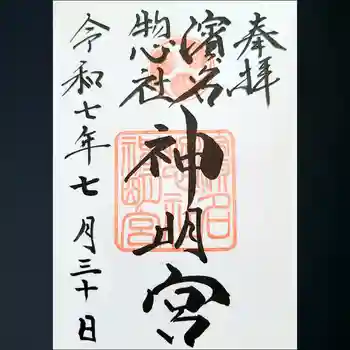 奉拝
濱名
惣社
神明宮
令和七年七月三十日